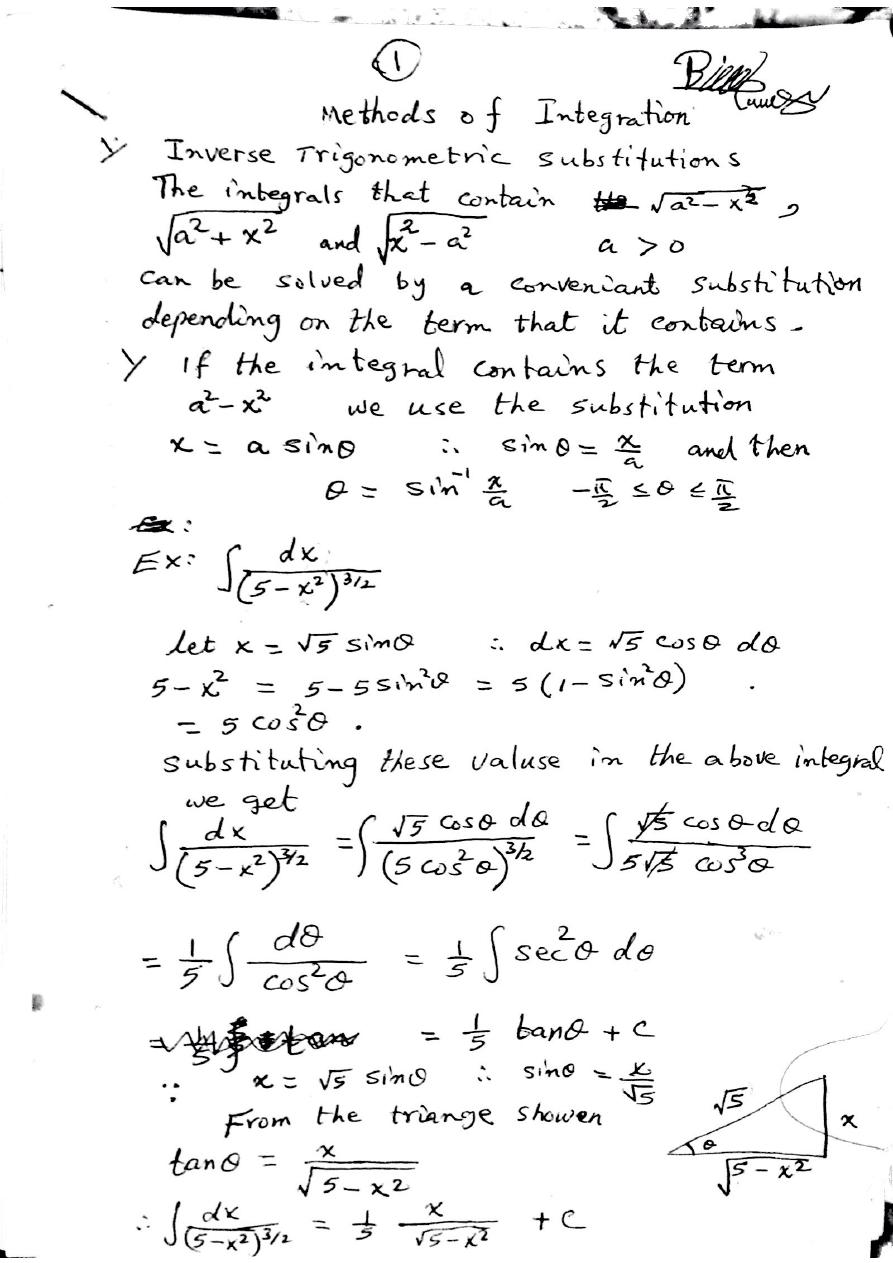 1
Methods of Integration
Inverse Trigonometric substitutions
The integrals that contain √(a² − x²) ,
√(a² + x²) and √(x² − a²) a > 0
can be solved by a conveniant substitution
depending on the term that it contains.
If the integral contains the term
a² − x² we use the substitution
x = a sinθ ∴ sinθ = x/a and then
θ = sin⁻¹ x/a −π/2 ≤ θ ≤ π/2
Ex: ∫ dx/(5 − x²)^(3/2)
let x = √5 sinθ ∴ dx = √5 cosθ dθ
5 − x² = 5 − 5 sin²θ = 5 (1 − sin²θ)
= 5 cos²θ .
substituting these valuse in the above integral
we get
∫ dx/(5 − x²)^(3/2) = ∫ √5 cosθ dθ/(5 cos²θ)^(3/2) = ∫ √5 cosθ dθ/(5√5 cos³θ)
= 1/5 ∫ dθ/cos²θ = 1/5 ∫ sec²θ dθ
= 1/5 tanθ + C
∵ x = √5 sinθ ∴ sinθ = x/√5
From the triange showen
tanθ = x/√(5 − x²)
∴ ∫ dx/(5 − x²)^(3/2) = 1/5 x/√(5 − x²) + C
√5
x
θ
√(5 − x²)